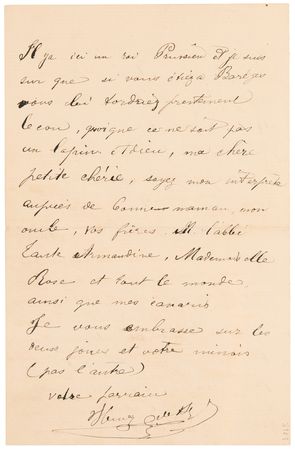 Il y a ici un roi Prussien et je suis
sur que si vous étiez a Barèges
vous lui tordriez prestement
le cou, quoique ce ne soit pas
un lapin. Adieu, ma chère
petite chérie, soyez mon interprète
auprès de bonne maman, mon
oncle, vos frères, M. l'abbé
tante Armandine, Mademoiselle
Rose et tout le monde
ainsi que mes canaris
Je vous embrasse sur les
deux joues et votre minois
(pas l'autre)
votre parrain
Henry